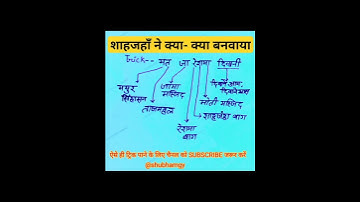 शाहजहाँ ने क्या- क्या बनवाया
Trick-- मत जा रेशमा दिवानी
मयूर सिंहासन
ताजमहल
जामा मस्जिद
रेशमा बाग
शाहजहां बाग
मोती मस्जिद
दिवाने आम,
दिवाने खास
ऐसे ही ट्रिक पाने के लिए चैनल को SUBSCRIBE जरूर करें
@shubhamgy